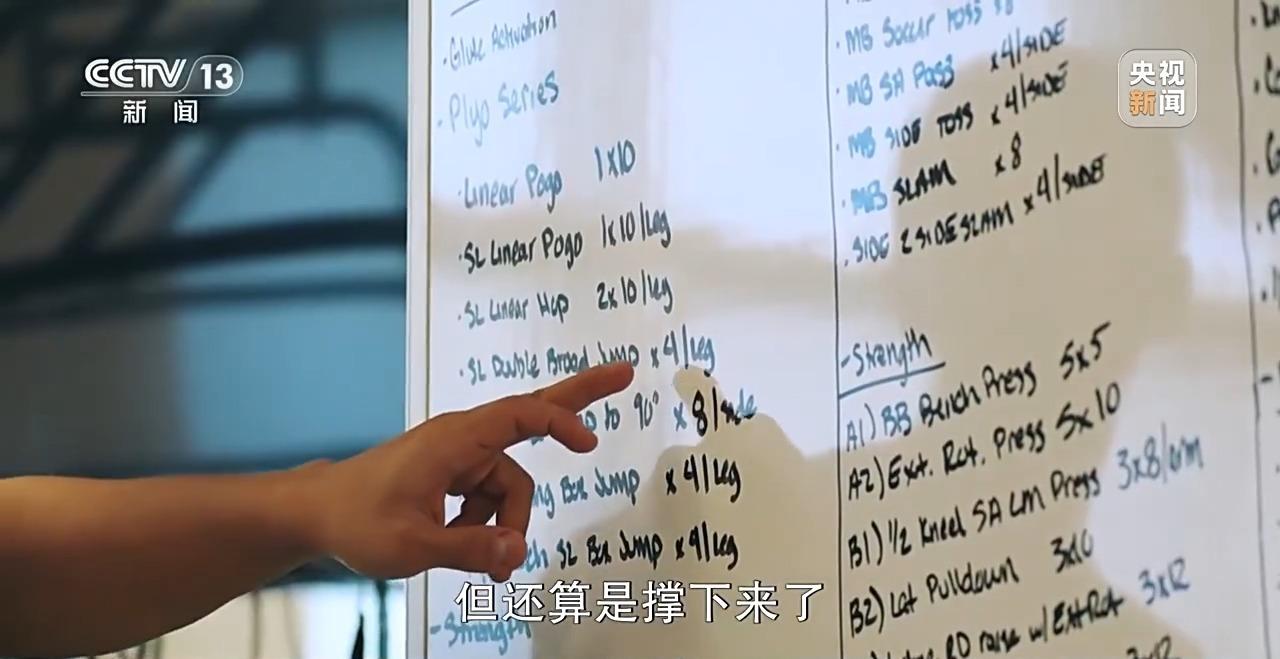 CCTV 13
新闻
央视
新闻
· Glute Activation
- Plyo Series
· Linear Pogo 1x10
· SL Linear Pogo 1x10/leg
· SL Linear Hop 2x10/leg
· SL Double Broad Jump x4/leg
to 90° x8/side
Box Jump x4/leg
SL Box Jump x4/leg
- Strength
· MB Soccer Toss x8
· MB SA Pass x4/SIDE
· MB SIDE TOSS x4/SIDE
· MB SLAM x8
· SIDE 2 SIDE SLAM x4/SIDE
- Strength
A1) BB Bench Press 5x5
A2) Ext. Rot. Press 5x10
B1) 1/2 Kneel SA LM Press 3x8/arm
B2) Lat Pulldown 3x10
RD raise w/ Ext Rot 3x12
3x12
但还算是撑下来了